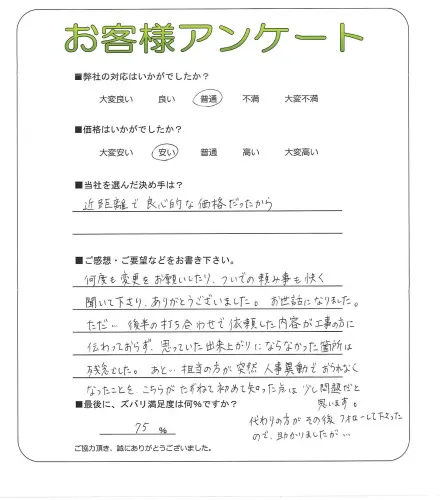 お客様アンケート
■弊社の対応はいかがでしたか？
大変良い 良い 普通 不満 大変不満
■価格はいかがでしたか？
大変安い 安い 普通 高い 大変高い
■当社を選んだ決め手は？
近距離で良心的な価格だったから
■ご感想・ご要望などをお書き下さい。
何度も変更をお願いしたり、ついでの頼み事も快く
聞いて下さり、ありがとうございました。お世話になりました。
ただ… 後半の打ち合わせで依頼した内容が工事の方に
伝わっておらず、思っていた出来上がりにならなかった箇所は
残念でした。あと… 担当の方が突然人事異動でおられなく
なったことを、こちらがたずねて初めて知った点は少し問題だと
思います。
■最後に、ズバリ満足度は何%ですか？
代わりの方がその後フォローして下さった
ので、助かりましたが…
75 %
ご協力頂き、誠にありがとうございました。